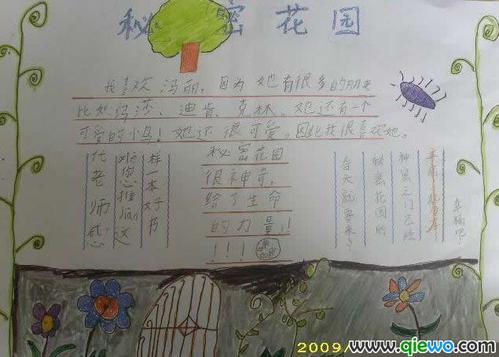 秘密花园
我喜欢玛丽,因为她有很多的朋友
比如玛莎、迪肯、克林。她还有一个
可爱的小鸟!她还很可爱。因此我很喜欢她。
秘密花园
很神奇,
给了生命
的力量!
!!!
代老师感
样一本好书
秘密花园的
2009/
www.qiewo.com